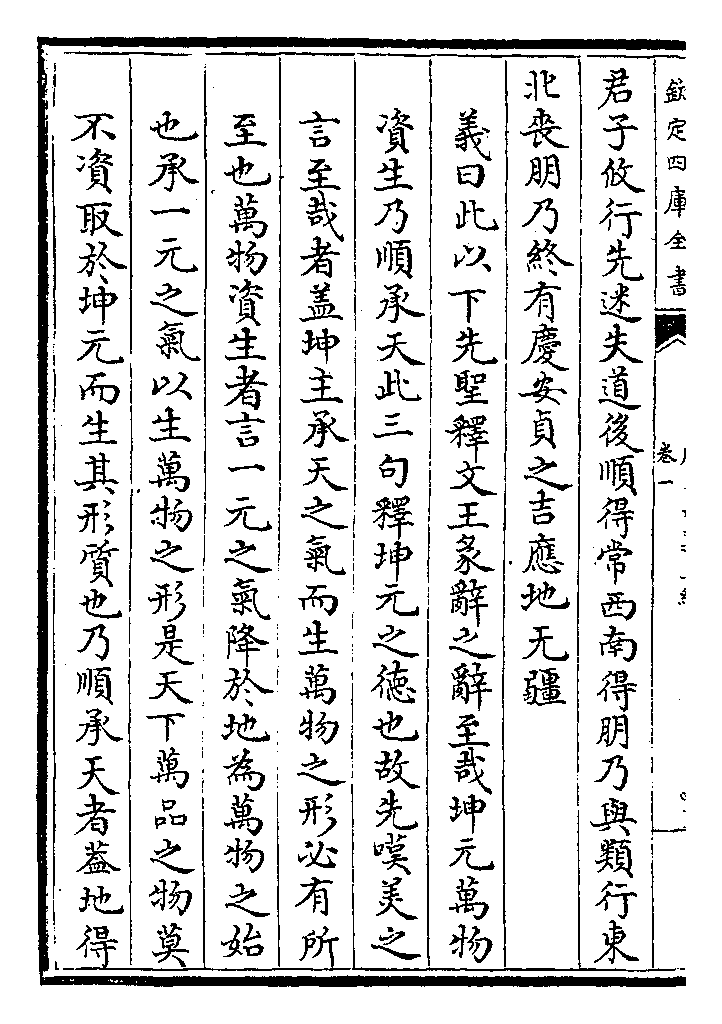 欽定四庫全書
卷一
君子攸行先迷失道後順得常西南得朋乃與類行東
北喪朋乃終有慶安貞之吉應地无疆
義曰此以下先聖釋文王彖辭之辭至哉坤元萬物
資生乃順承天此三句釋坤元之德也故先嘆美之
言至哉者盖坤主承天之氣而生萬物之形必有所
至也萬物資生者言一元之氣降於地為萬物之始
也承一元之氣以生萬物之形是天下萬品之物莫
不資取於坤元而生其形質也乃順承天者葢地得